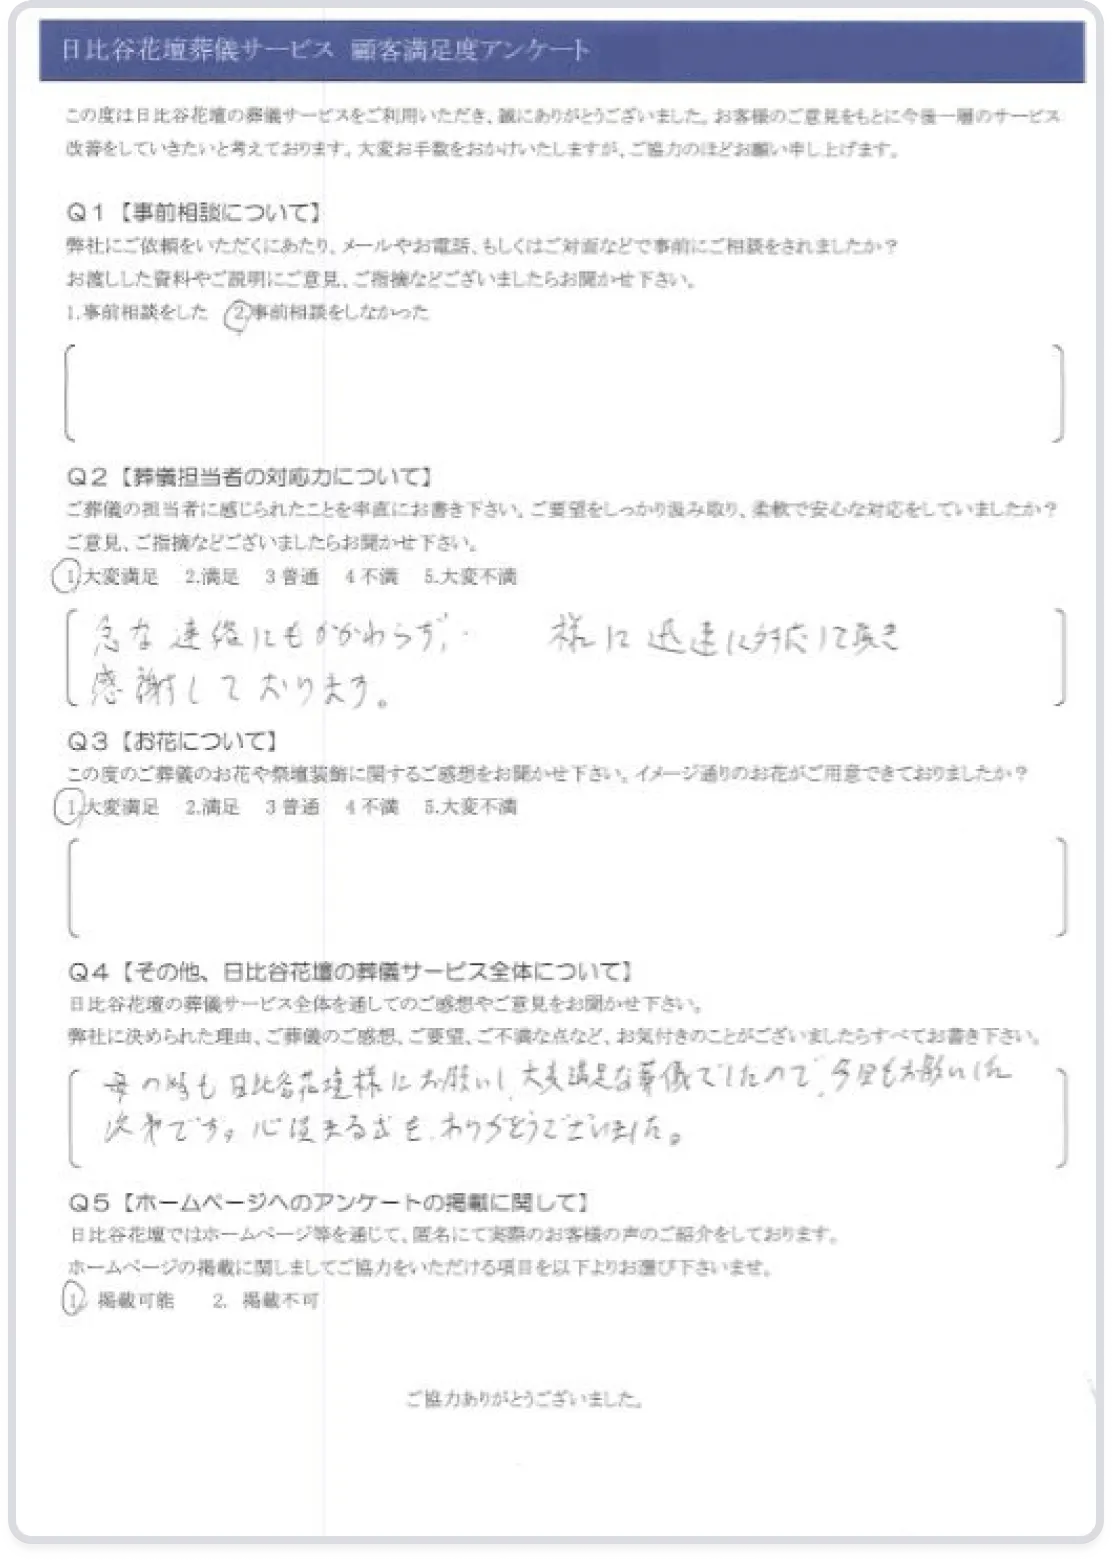 日比谷花壇葬儀サービス 顧客満足度アンケート
この度は日比谷花壇の葬儀サービスをご利用いただき、誠にありがとうございました。お客様のご意見をもとに今後一層のサービス
改善をしていきたいと考えております。大変お手数をおかけいたしますが、ご協力のほどお願い申し上げます。
Q1【事前相談について】
弊社にご依頼をいただくにあたり、メールやお電話、もしくはご対面などで事前にご相談をされましたか？
お渡しした資料やご説明にご意見、ご指摘などございましたらお聞かせ下さい。
1.事前相談をした 2.事前相談をしなかった
Q2【葬儀担当者の対応力について】
ご葬儀の担当者に感じられたことを率直にお書き下さい。ご要望をしっかり汲み取り、柔軟で安心な対応をしていましたか？
ご意見、ご指摘などございましたらお聞かせ下さい。
1.大変満足 2.満足 3 普通 4 不満 5.大変不満
急な連絡にもかかわらず、 様に迅速に対応して頂き
感謝しております。
Q3【お花について】
この度のご葬儀のお花や祭壇装飾に関するご感想をお聞かせ下さい。イメージ通りのお花がご用意できておりましたか？
1.大変満足 2.満足 3 普通 4 不満 5.大変不満
Q4【その他、日比谷花壇の葬儀サービス全体について】
日比谷花壇の葬儀サービス全体を通してのご感想やご意見をお聞かせ下さい。
弊社に決められた理由、ご葬儀のご感想、ご要望、ご不満な点など、お気付きのことがございましたらすべてお書き下さい。
母の時も日比谷花壇様にお願いし、大変満足な葬儀でしたので、今回もお願いした
次第です。心温まる式を、ありがとうございました。
Q5【ホームページへのアンケートの掲載に関して】
日比谷花壇ではホームページ等を通じて、匿名にて実際のお客様の声のご紹介をしております。
ホームページの掲載に関しましてご協力をいただける項目を以下よりお選び下さいませ。
1. 掲載可能 2. 掲載不可
ご協力ありがとうございました。